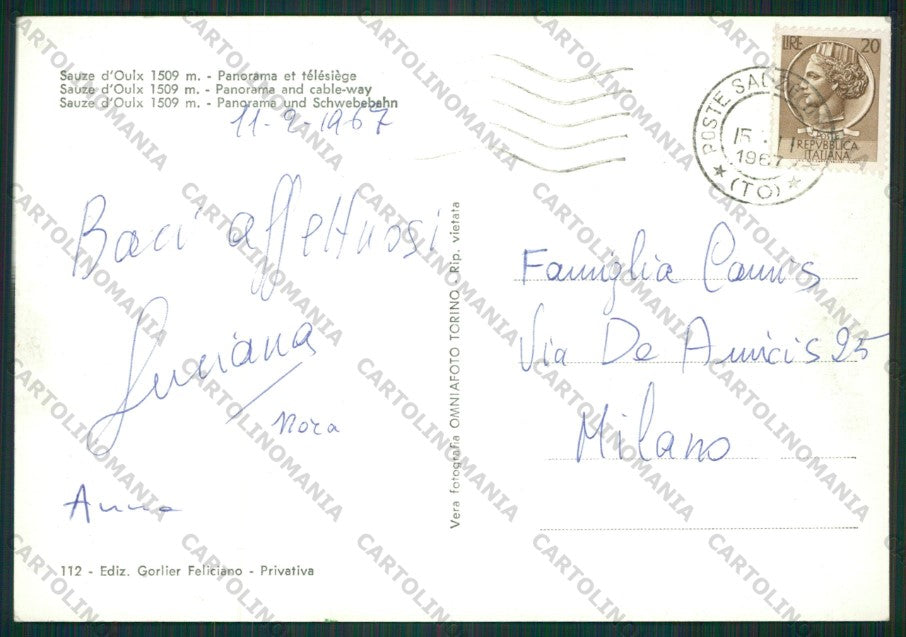 Sauze d'Oulx 1509 m. - Panorama et télésiège
Sauze d'Oulx 1509 m. - Panorama and cable-way
Sauze d'Oulx 1509 m. - Panorama und Schwebebahn
11-2-1967
Baci affettuosi
Luciana
Nora
Anna
112 - Ediz. Gorlier Feliciano - Privativa
Vera fotografia OMNIAFOTO TORINO - Rip. vietata
LIRE 20
REPVBBLICA
ITALIANA
POSTE SAUZE
15
1967
(TO)
Famiglia Camis
Via De Amicis 25
Milano
CARTOLINOMANIA